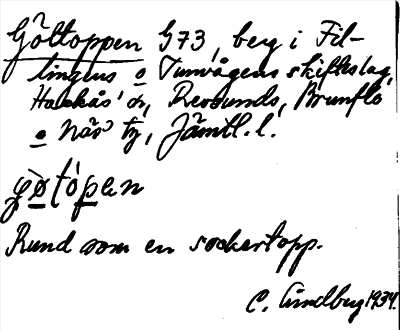 Göltoppen 973, berg i Fil-
lingens o Tunvågens skifteslag,
Hackås' o, Revsunds, Brunflo
o Näs' tg, Jämtl. l.
gø̀tópen
Rund som en sockertopp.
C. Lindberg 1934.